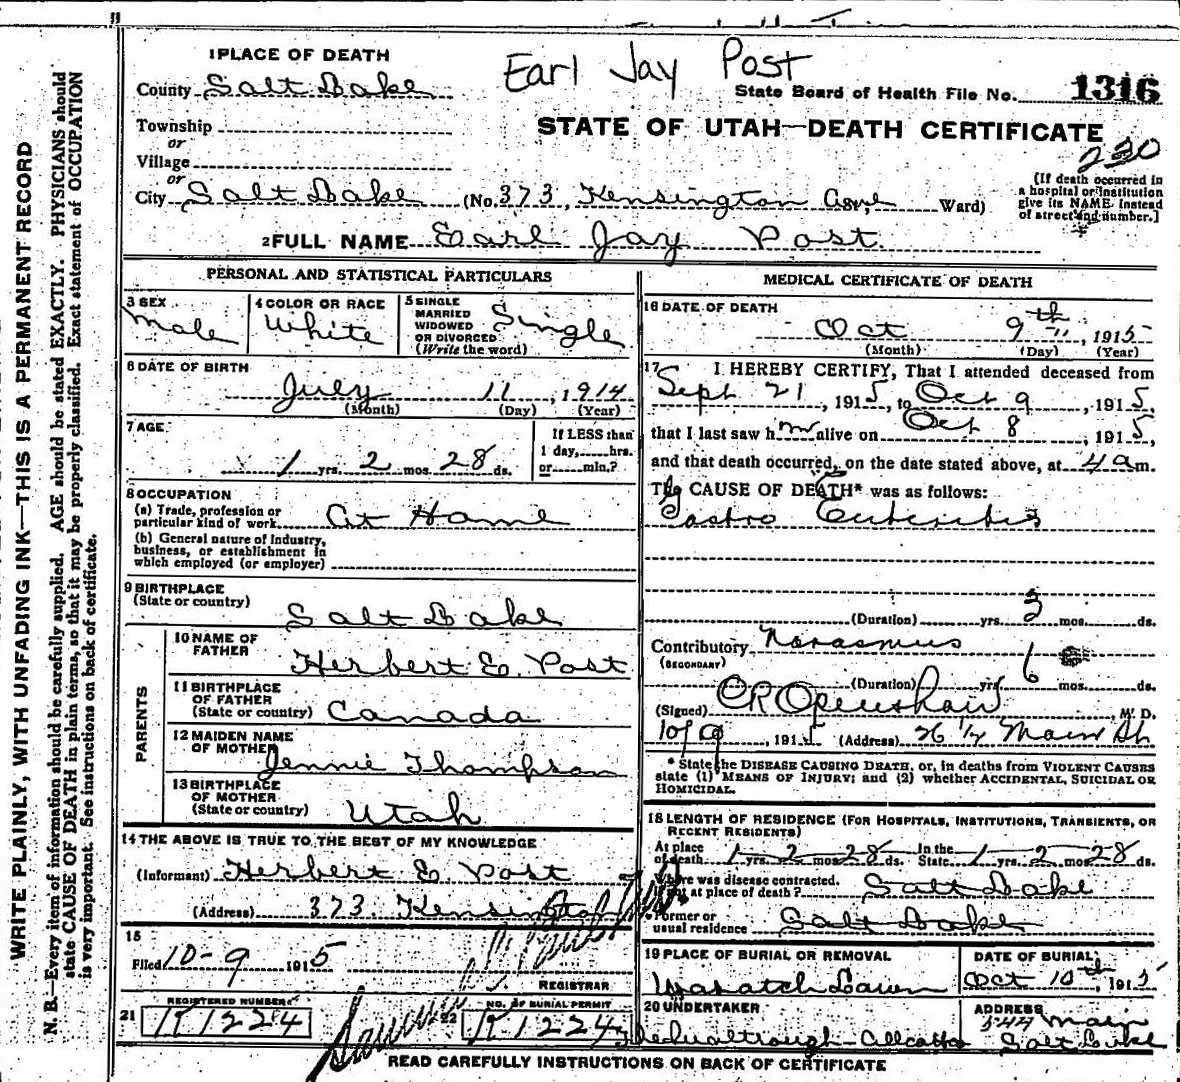 WRITE PLAINLY, WITH UNFADING INK—THIS IS A PERMANENT RECORD
N. B.—Every item of information should be carefully supplied. AGE should be stated EXACTLY. PHYSICIANS should
state CAUSE OF DEATH in plain terms, so that it may be properly classified. Exact statement of OCCUPATION
is very important. See instructions on back of certificate.
Earl Jay Post
1 PLACE OF DEATH
County Salt Lake
State Board of Health File No. 1316
Township
or
Village
or
STATE OF UTAH—DEATH CERTIFICATE
230
City Salt Lake (No. 373, Kensington Ave, Ward)
(If death occurred in
a hospital or institution
give its NAME instead
of street and number.]
2 FULL NAME Earl Jay Post
PERSONAL AND STATISTICAL PARTICULARS
3 SEX
Male
4 COLOR OR RACE
White
5 SINGLE
MARRIED
WIDOWED
OR DIVORCED
(Write the word)
Single
6 DATE OF BIRTH
July 11, 1914
(Month) (Day) (Year)
7 AGE
1 yrs. 2 mos. 28 ds.
If LESS than
1 day, hrs.
or min.?
8 OCCUPATION
(a) Trade, profession or
particular kind of work At Home
(b) General nature of Industry,
business, or establishment in
which employed (or employer)
9 BIRTHPLACE
(State or country)
Salt Lake
PARENTS
10 NAME OF
FATHER
Herbert E. Post
11 BIRTHPLACE
OF FATHER
(State or country) Canada
12 MAIDEN NAME
OF MOTHER
Jennie Thompson
13 BIRTHPLACE
OF MOTHER
(State or country) Utah
14 THE ABOVE IS TRUE TO THE BEST OF MY KNOWLEDGE
(Informant) Herbert E Post
(Address) 373. Kensington
15
Filed 10-9 1915
REGISTRAR
REGISTERED NUMBER
21 K1224
NO. OF BURIAL PERMIT
22 K1224
MEDICAL CERTIFICATE OF DEATH
16 DATE OF DEATH
Oct 9th, 1915
(Month) (Day) (Year)
17 I HEREBY CERTIFY, That I attended deceased from
Sept 21, 1915, to Oct 9, 1915,
that I last saw hm alive on Oct 8, 1915,
and that death occurred, on the date stated above, at 4 a m.
The CAUSE OF DEATH* was as follows:
Gastro Enteritis
(Duration) yrs. 3 mos. ds.
Contributory Marasmus
(SECONDARY)
(Duration) yrs. 6 mos. ds.
(Signed) CR Openshaw, M. D.
10/9, 1915 (Address) 26 1/2 Main St
* State the DISEASE CAUSING DEATH, or, in deaths from VIOLENT CAUSES
state (1) MEANS OF INJURY; and (2) whether ACCIDENTAL, SUICIDAL OR
HOMICIDAL.
18 LENGTH OF RESIDENCE (FOR HOSPITALS, INSTITUTIONS, TRANSIENTS, OR
RECENT RESIDENTS)
At place
of death 1 yrs. 2 mos. 28 ds. In the
State 1 yrs. 2 mos. 28 ds.
Where was disease contracted,
if not at place of death? Salt Lake
Former or
usual residence Salt Lake
19 PLACE OF BURIAL OR REMOVAL
Wasatch Lawn
DATE OF BURIAL
Oct 10th 1915
20 UNDERTAKER
ADDRESS
544 Main
Salt Lake
READ CAREFULLY INSTRUCTIONS ON BACK OF CERTIFICATE